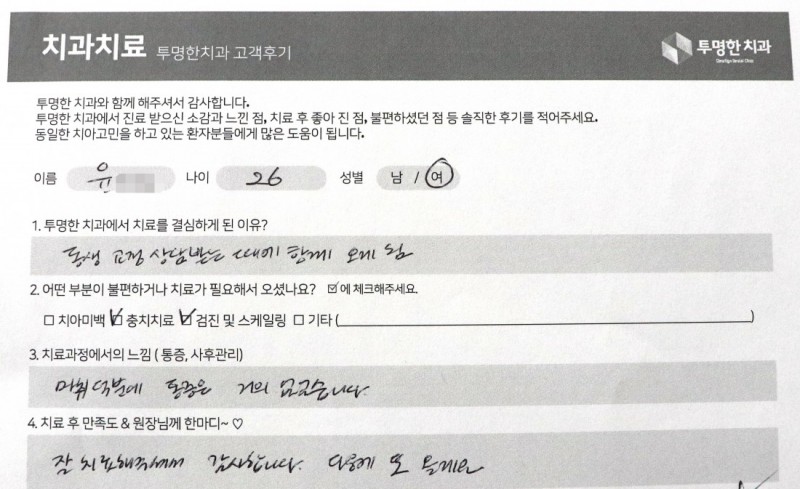 치과치료 투명한치과 고객후기
투명한 치과
투명한 치과와 함께 해주셔서 감사합니다.
투명한 치과에서 진료 받으신 소감과 느낀 점, 치료 후 좋아 진 점, 불편하셨던 점 등 솔직한 후기를 적어주세요.
동일한 치아고민을 하고 있는 환자분들에게 많은 도움이 됩니다.
이름 유 나이 26 성별 남 / 여
1. 투명한 치과에서 치료를 결심하게 된 이유?
동생 교정 상담받는 때에 함께 오게 됨
2. 어떤 부분이 불편하거나 치료가 필요해서 오셨나요? ☑에 체크해주세요.
☐ 치아미백 ☑ 충치치료 ☑ 검진 및 스케일링 ☐ 기타 ( )
3. 치료과정에서의 느낌 ( 통증, 사후관리)
마취 덕분에 통증은 거의 없었습니다.
4. 치료 후 만족도 & 원장님께 한마디~ ♡
잘 치료해주셔서 감사합니다. 다음에 또 올게요